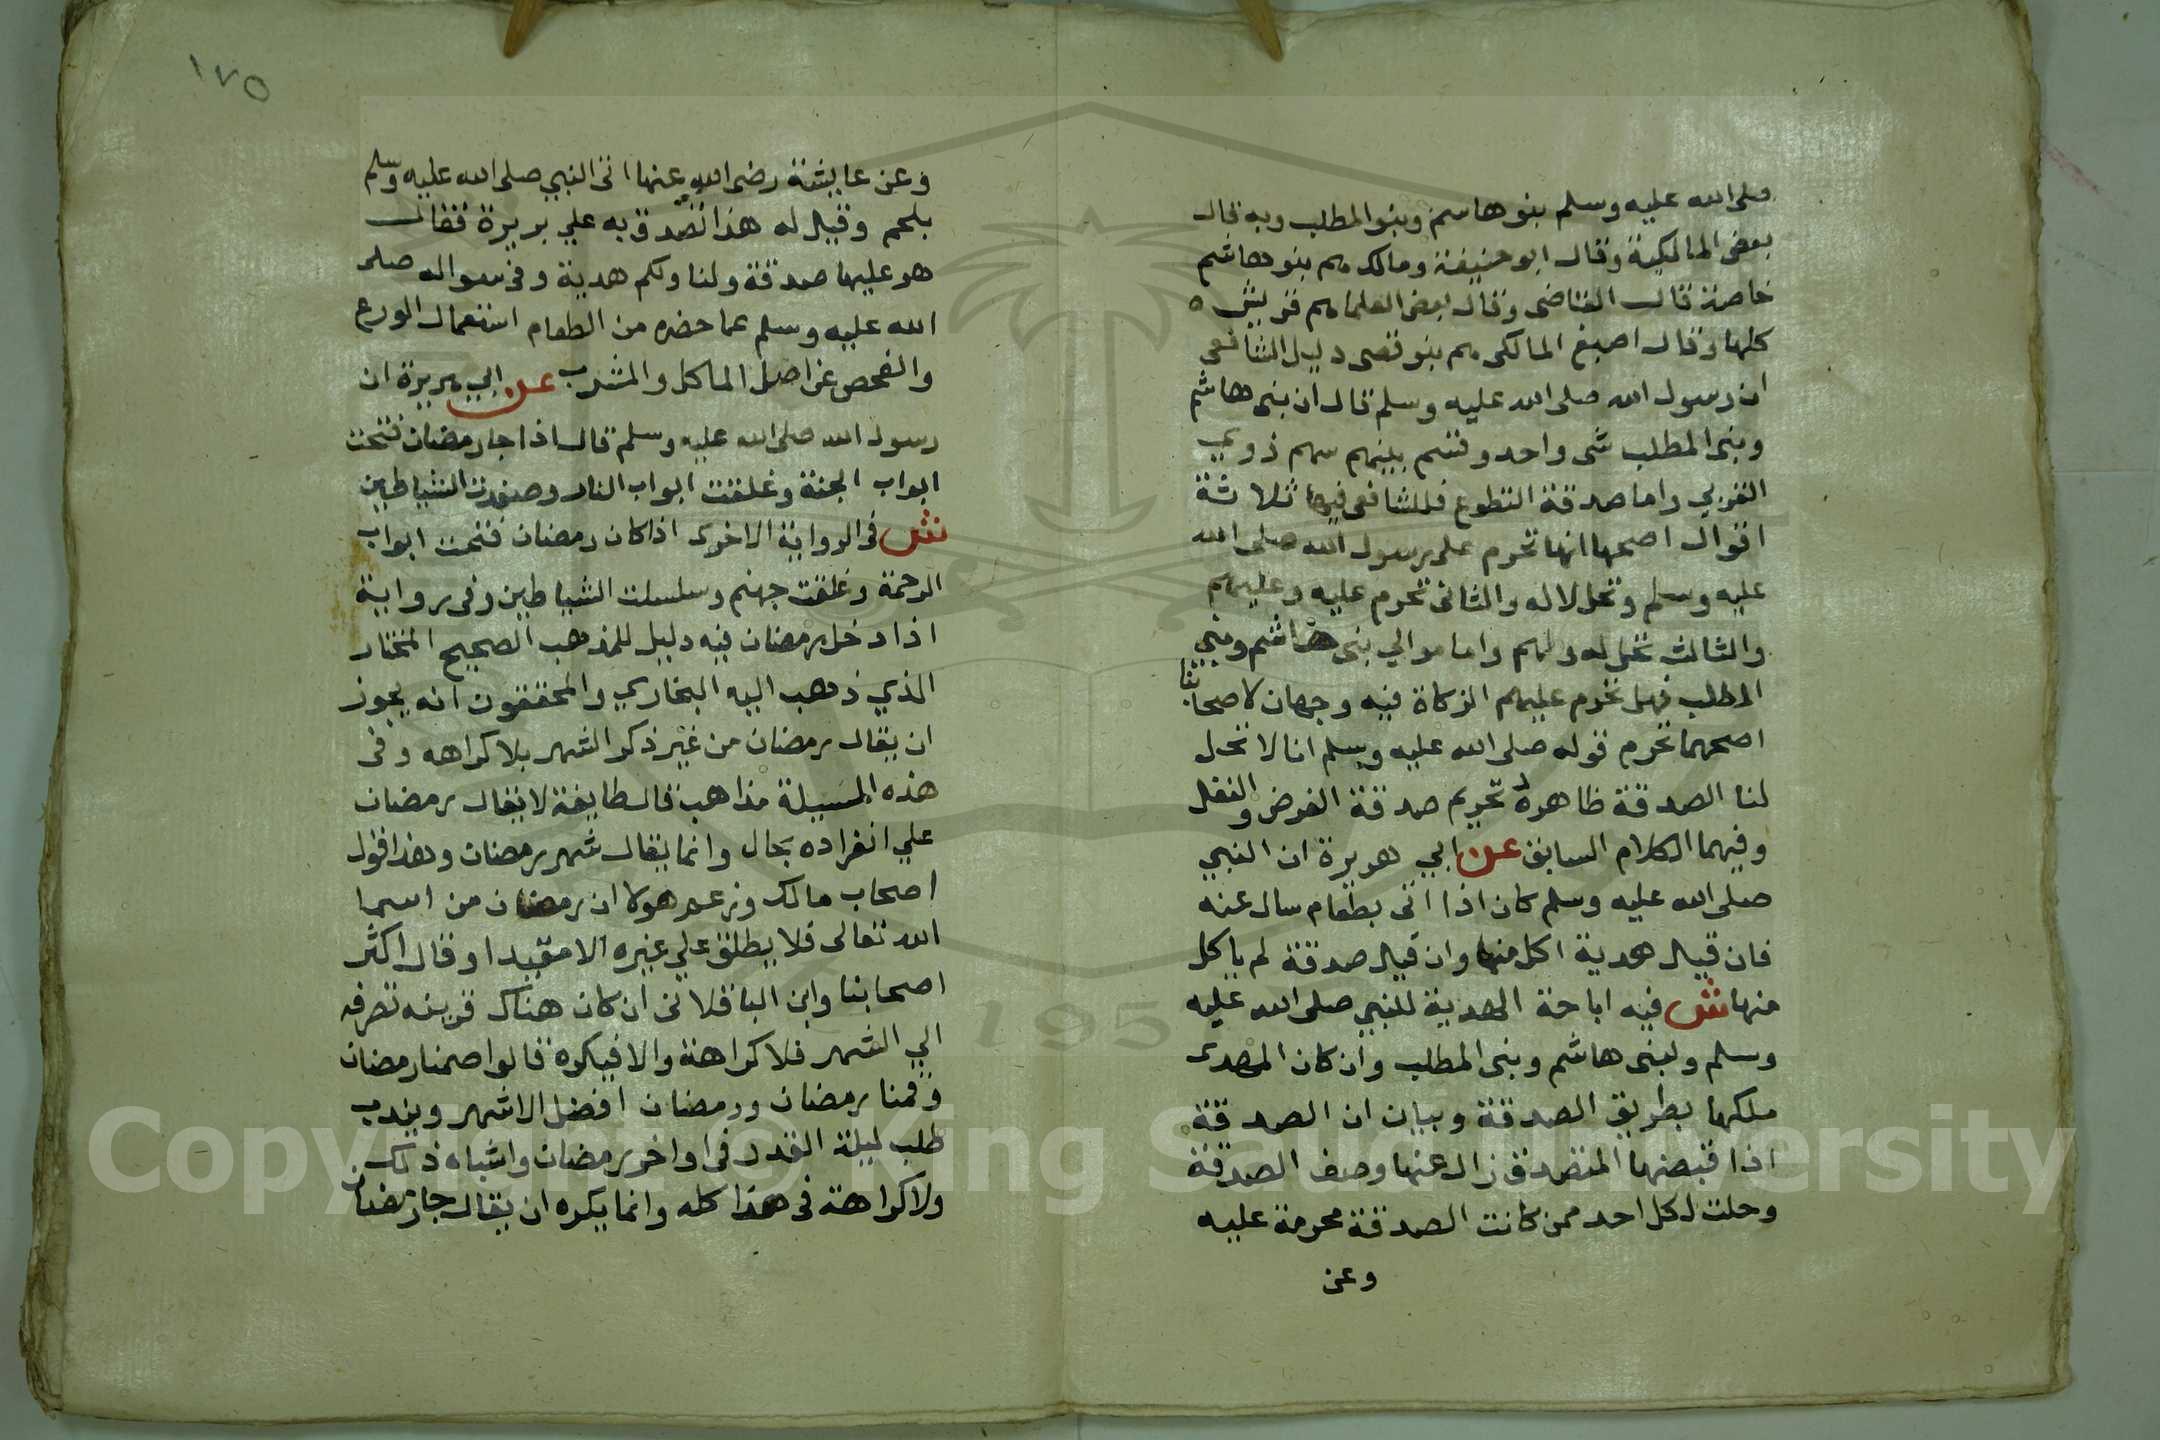 صلى الله عليه وسلم بنو هاشم وبنو المطلب وبه قال
بعض المالكية وقال ابو حنيفة ومالك هم بنو هاشم
خاصة قال القاضى وقال بعض العلما هم قريش
كلها وقال اصبغ المالكى هم بنو قصى دليل الشافعى
ان رسول الله صلى الله عليه وسلم قال ان بنى هاشم
وبنى المطلب شى واحد وقسم بينهم سهم ذوي
القربي واما صدقة التطوع فللشافعى فيها ثلاثة
اقوال اصحها انها تحرم على رسول الله صلى الله
عليه وسلم وتحل لاله والثانى تحرم عليه وعليهم
والثالث تحل له ولهم واما موالي بنى هاشم وبني
المطلب فهل تحرم عليهم الزكاة فيه وجهان لاصحابنا
اصحهما تحرم قوله صلى الله عليه وسلم انا لا تحل
لنا الصدقة ظاهره تحريم صدقة الفرض والنفل
وفيهما الكلام السابق عن ابي هريرة ان النبي
صلى الله عليه وسلم كان اذا اتى بطعام سال عنه
فان قيل هدية اكل منها وان قيل صدقة لم ياكل
منها ش فيه اباحة الهدية للنبي صلى الله عليه
وسلم ولبنى هاشم وبنى المطلب وان كان المهدى
ملكها بطريق الصدقة وبيان ان الصدقة
اذا قبضها المتصدق زال عنها وصف الصدقة
وحلت لكل احد ممن كانت الصدقة محرمة عليه
وعن
١٧٥
وعن عايشة رضى الله عنها اتى النبي صلى الله عليه وسلم
بلحم وقيل له هذا تصدق به علي بريرة فقال
هو عليها صدقة ولنا ولكم هدية وفى سواله صلى
الله عليه وسلم عما حضره من الطعام استعمال الورع
والفحص عن اصل الماكل والمشرب عن ابي هريرة ان
رسول الله صلى الله عليه وسلم قال اذا جا رمضان فتحت
ابواب الجنة وغلقت ابواب النار وصفدت الشياطين
ش فى الرواية الاخرى اذا كان رمضان فتحت ابواب
الرحمة وغلقت جهنم وسلسلت الشياطين وفى رواية
اذا دخل رمضان فيه دليل للمذهب الصحيح المختار
الذي ذهب اليه البخاري والمحققون انه يجوز
ان يقال رمضان من غير ذكر الشهر بلا كراهه وفى
هذه المسيلة مذاهب قال طايفة لا يقال رمضان
علي انفراده بحال وانما يقال شهر رمضان وهذا قول
اصحاب مالك وزعم هولا ان رمضان من اسما
الله تعالى فلا يطلق علي غيره الا مقيدا وقال اكثر
اصحابنا وابن الباقلانى ان كان هناك قرينه تصرفه
الي الشهر فلا كراهة والا فيكره قالوا صمنا رمضان
وقمنا رمضان ورمضان افضل الاشهر ويندب
طلب ليلة القدر فى اواخر رمضان واشباه ذلك
ولا كراهة فى هذا كله وانما يكره ان يقال جا رمضان
Copyright © King Saud University
195